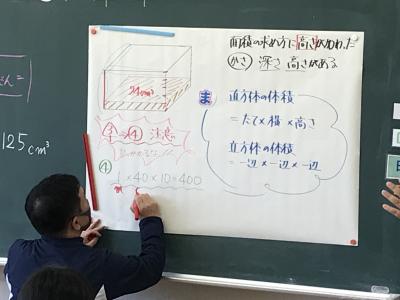 面積の求め方に高さが加わった
かさ 深さ 高さがある
24cm³
ま 直方体の体積
=たて×横×高さ
立方体の体積
=一辺×一辺×一辺
④ 注意
④
1×40×10=400
m
125cm³